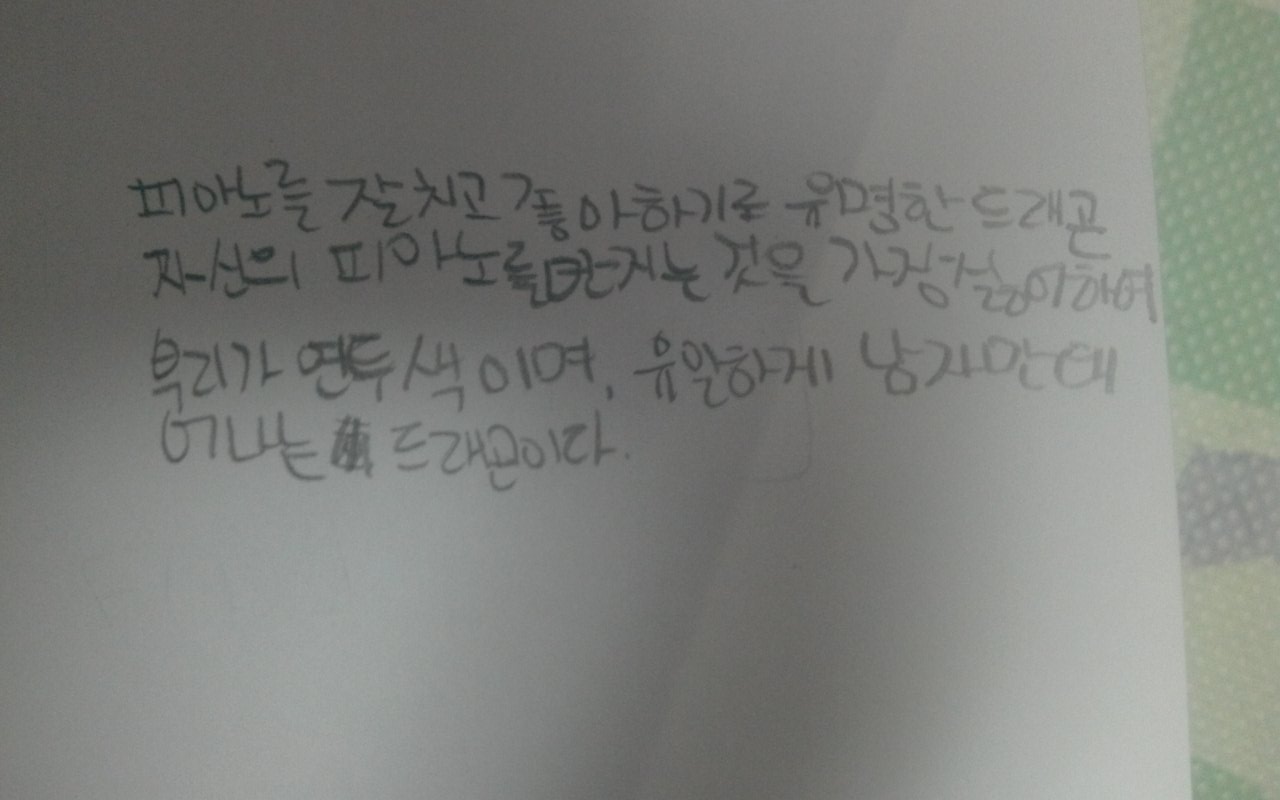 피아노를 잘 치고 좋아하기로 유명한 드래곤
자신의 피아노를 만지는 것을 가장 싫어하며
부리가 연두색이며, 유일하게 남자만 태
어나는 드래곤이다.